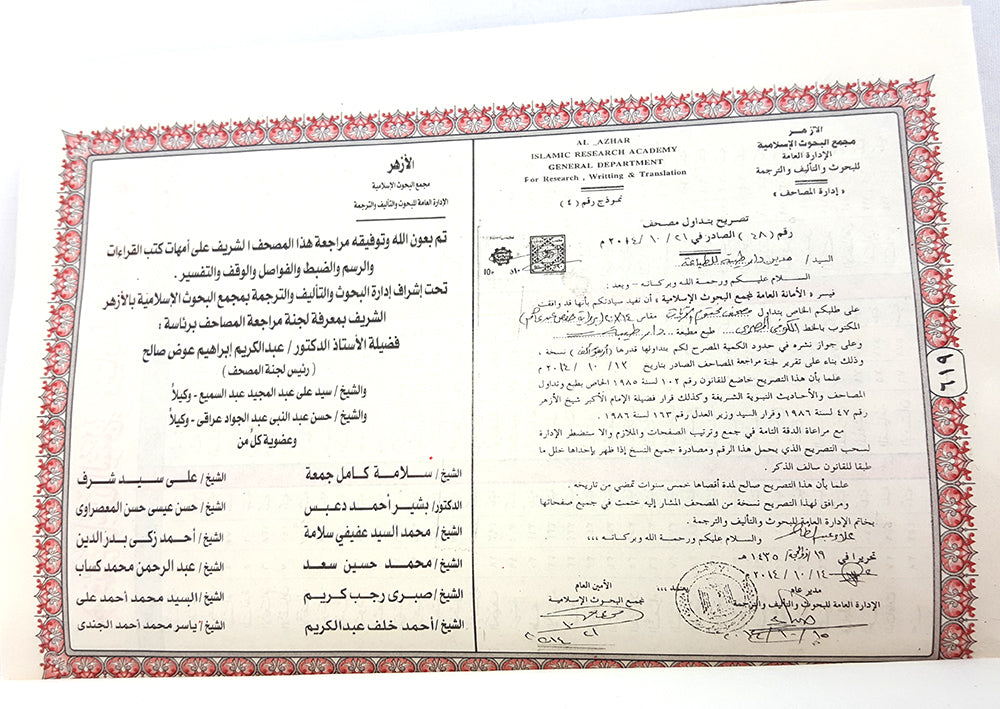 الأزهر
مجمع البحوث الإسلامية
الإدارة العامة
للبحوث والتأليف والترجمة
« إدارة المصاحف »
AL _AZHAR
ISLAMIC RESEARCH ACADEMY
GENERAL DEPARTMENT
For Research , Writting & Translation
نموذج رقم ( ٤ )
تصريح بتداول مصحف
رقم ( ٤٨ ) الصادر في ٢١ / ١٠ / ٢٠١٤ م
السيد / مدير دار طيبة للطباعة
السلام عليكم ورحمة الله وبركاته - وبعد :
فيسر « الأمانة العامة لمجمع البحوث الإسلامية » أن تفيد سيادتكم بأنها قد وافقت
على طلبكم الخاص بتداول مصحف مقاس ١٤×٢٠ برواية حفص عن عاصم
المكتوب بالخط طبع مطبعة .. دار طيبة
وعلى جواز نشره في حدود الكمية المصرح لكم بتداولها قدرها نسخة ،
وذلك بناء على تقرير لجنة مراجعة المصاحف الصادر بتاريخ ١٣ / ١٠ / ٢٠١٤ م
علما بأن هذا التصريح خاضع للقانون رقم ١٠٢ لسنة ١٩٨٥ الخاص بطبع وتداول
المصاحف والأحاديث النبوية الشريفة وكذلك قرار فضيلة الإمام الأكبر شيخ الأزهر
رقم ٤٧ لسنة ١٩٨٦ وقرار السيد وزير العدل رقم ١٦٣ لسنة ١٩٨٦ .
مع مراعاة الدقة التامة في جمع وترتيب الصفحات والملازم والا ستضطر الإدارة
لسحب التصريح الذي يحمل هذا الرقم ومصادرة جميع النسخ إذا ظهر بإحداها خلل ما
طبقا للقانون سالف الذكر .
علما بأن هذا التصريح صالح لمدة أقصاها خمس سنوات تمضي من تاريخه .
ومرافق لهذا التصريح نسخة من المصحف المشار إليه ختمت في جميع صفحاتها
بخاتم الإدارة العامة للبحوث والتأليف والترجمة .
والسلام عليكم ورحمة الله وبركاته ،،،
تحريرا في ١٩ ذو الحجة ١٤٣٥ هـ
١٤ / ١٠ / ٢٠١٤ م
مدير عام
الإدارة العامة للبحوث والتأليف والترجمة
الأمين العام
لمجمع البحوث الإسلامية
٦١٩
الأزهر
مجمع البحوث الإسلامية
الإدارة العامة للبحوث والتأليف والترجمة
تم بعون الله وتوفيقه مراجعة هذا المصحف الشريف على أمهات كتب القراءات
والرسم والضبط والفواصل والوقف والتفسير .
تحت إشراف إدارة البحوث والتأليف والترجمة بمجمع البحوث الإسلامية بالأزهر
الشريف بمعرفة لجنة مراجعة المصاحف برئاسة :
فضيلة الأستاذ الدكتور / عبدالكريم إبراهيم عوض صالح
( رئيس لجنة المصحف )
والشيخ / سيد على عبد المجيد عبد السميع - وكيلاً
والشيخ / حسن عبد النبى عبد الجواد عراقى - وكيلاً
وعضوية كل من
الشيخ / سلامة كامل جمعة الشيخ / على سيد شرف
الدكتور/ بشير أحمد دعبس الشيخ / حسن عيسى حسن المعصراوى
الشيخ / محمد السيد عفيفى سلامة الشيخ / أحمد زكى بدر الدين
الشيخ / محمد حسين سعد الشيخ / عبد الرحمن محمد كساب
الشيخ / صبرى رجب كريم الشيخ / السيد محمد أحمد على
الشيخ / أحمد خلف عبدالكريم الشيخ / ياسر محمد أحمد الجندى